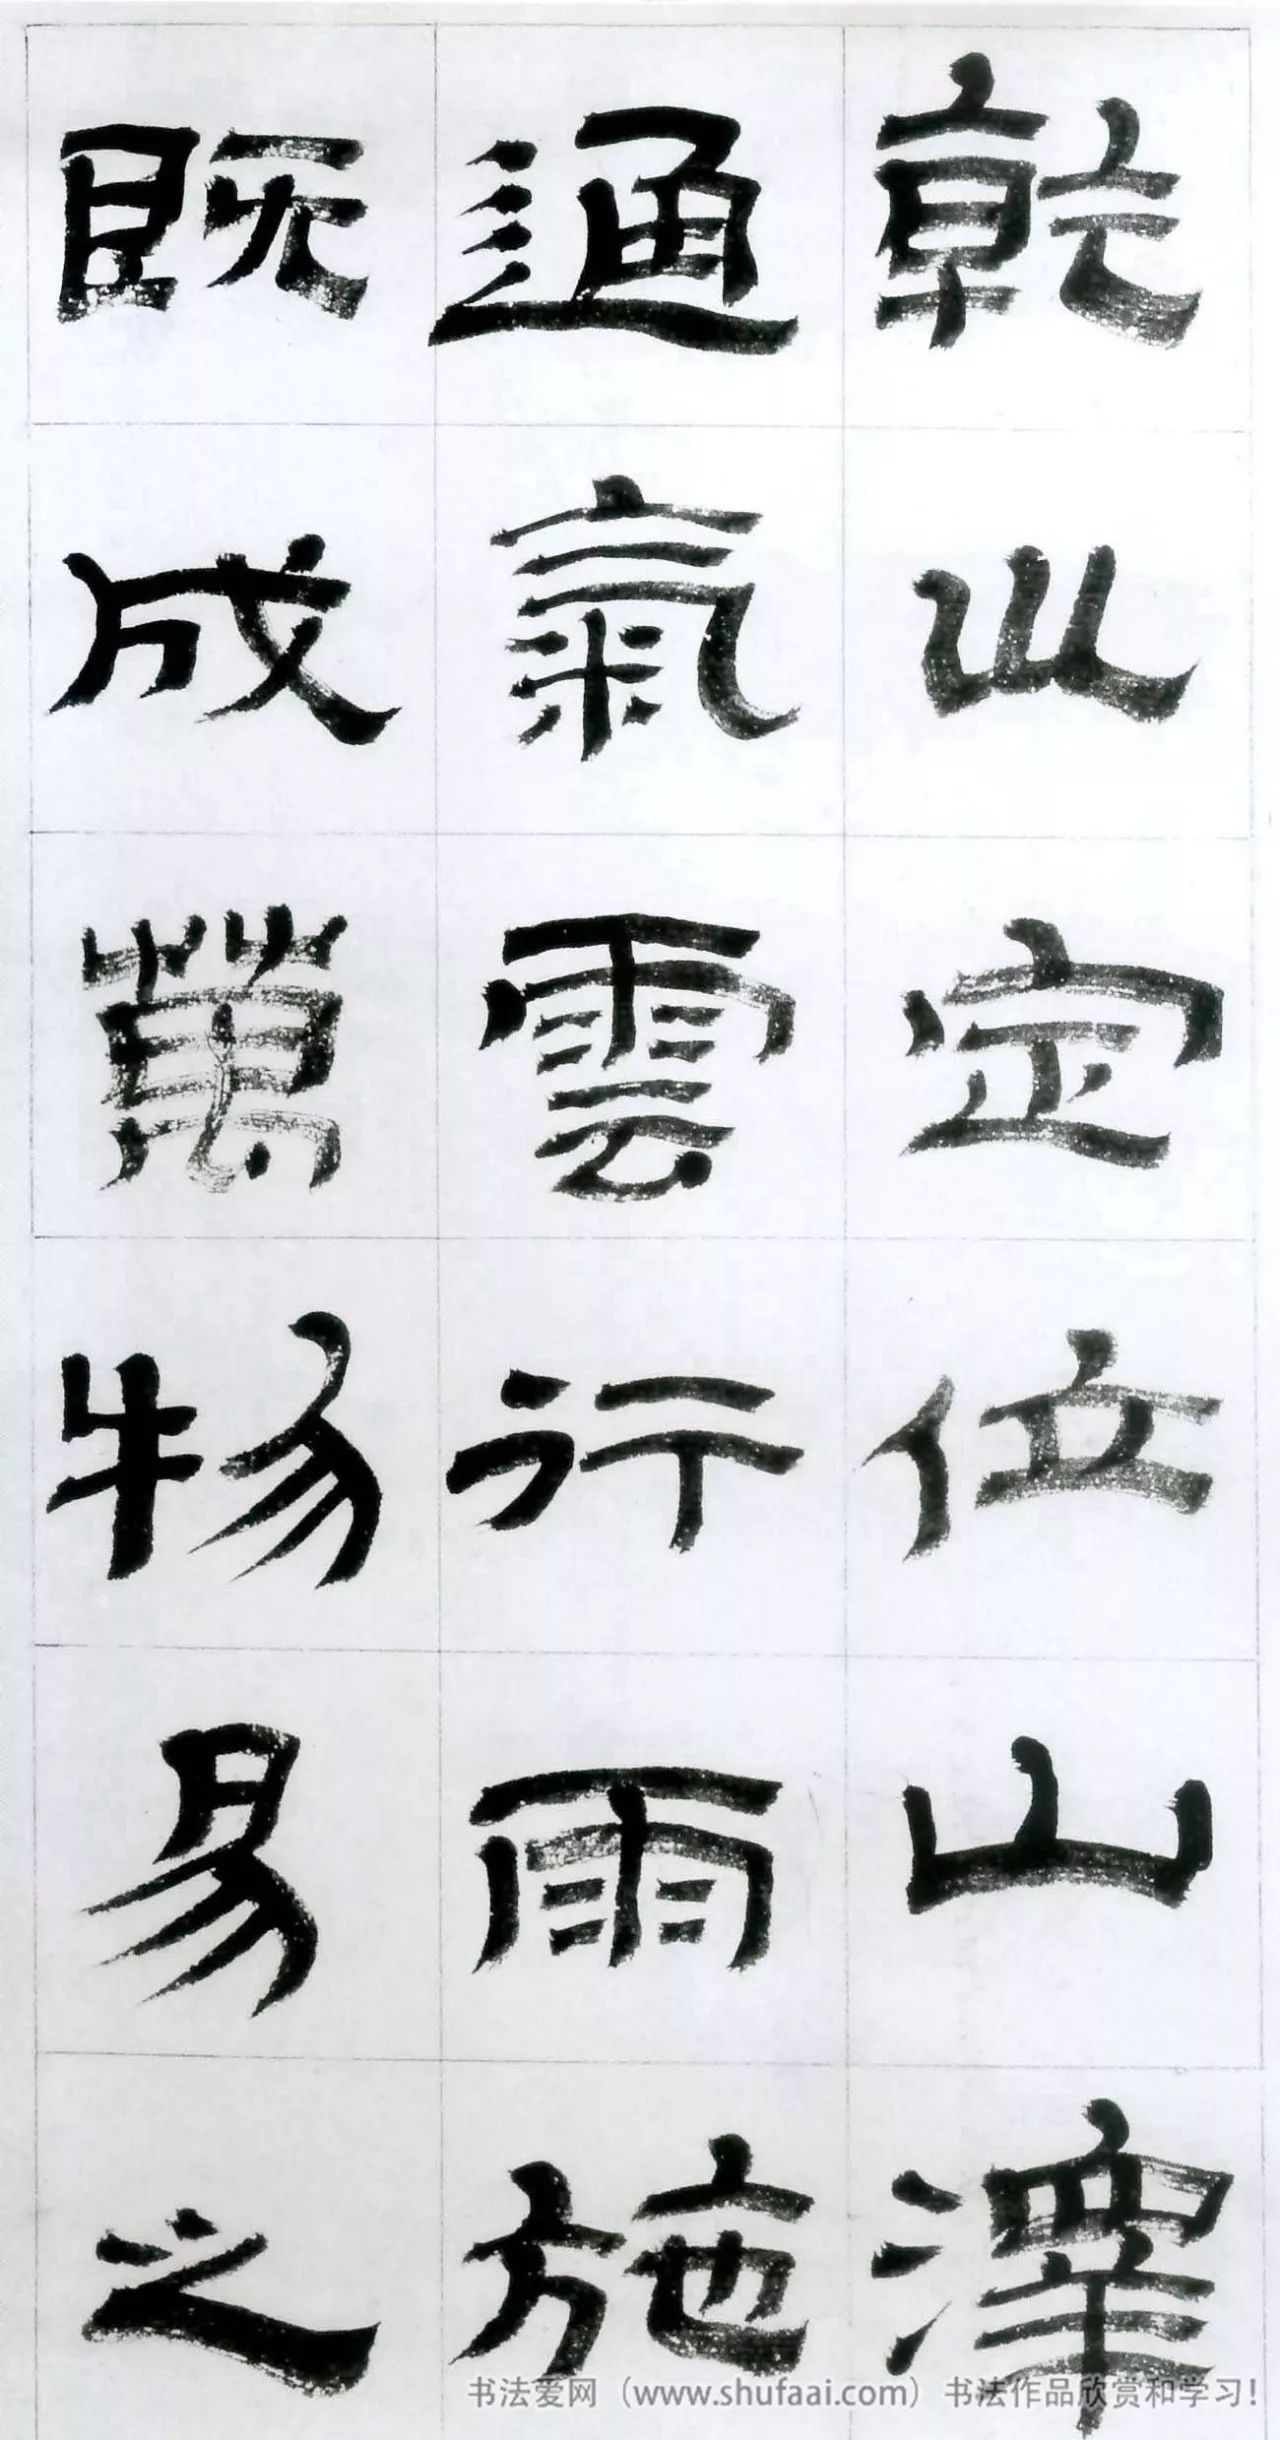 乾巛定位山澤
通氣雲行雨施
既成萬物易之
书法爱网（www.shufaai.com）书法作品欣赏和学习！